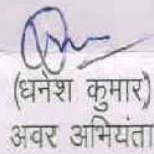 (धनेश कुमार)
अवर अभियंता